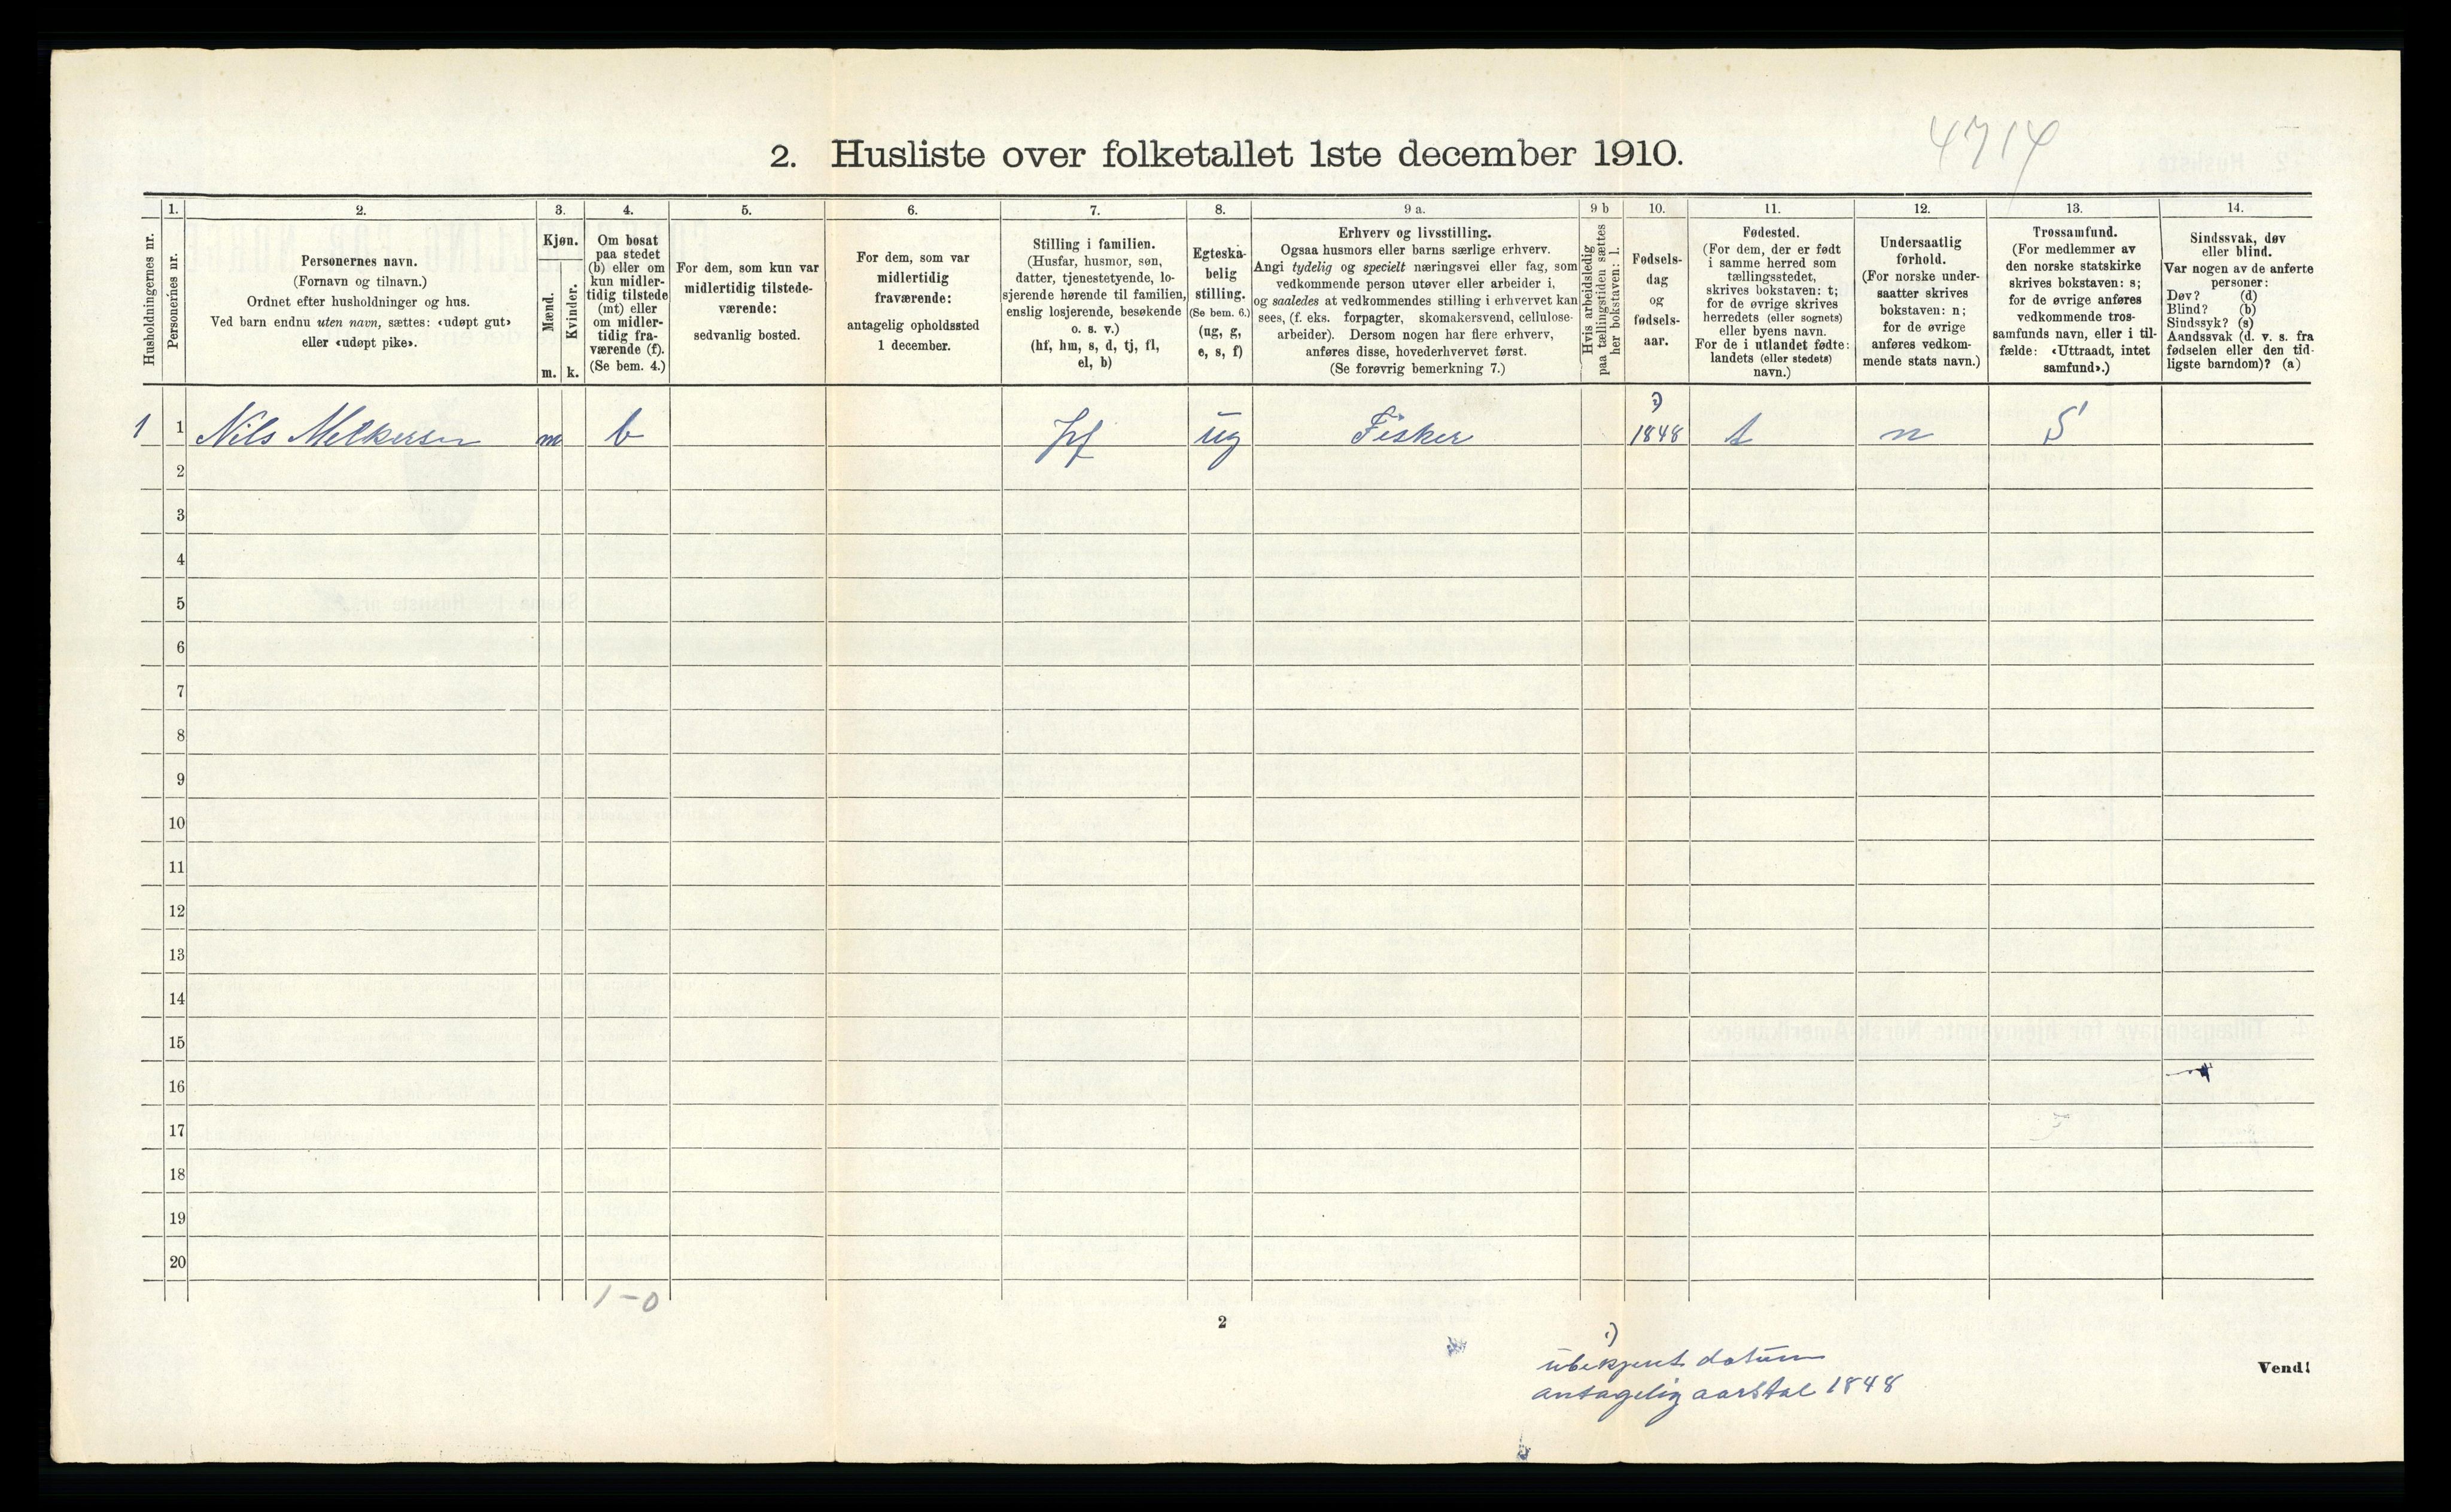 4714
2. Husliste over folketallet 1ste december 1910.
Husholdningernes nr.
1.
Personernes nr.
2.
Personernes navn.
(Fornavn og tilnavn.)
Ordnet efter husholdninger og hus.
Ved barn endnu uten navn, sættes: «udøpt gut»
eller «udøpt pike».
3.
Kjøn.
Mænd.
Kvinder.
m. k.
4.
Om bosat
paa stedet
(b) eller om
kun midler-
tidig tilstede
(mt) eller
om midler-
tidig fra-
værende (f).
(Se bem. 4.)
5.
For dem, som kun var
midlertidig tilstede-
værende:
sedvanlig bosted.
6.
For dem, som var
midlertidig
fraværende:
antagelig opholdssted
1 december.
7.
Stilling i familien.
(Husfar, husmor, søn,
datter, tjenestetyende, lo-
sjerende hørende til familien,
enslig losjerende, besøkende
o. s. v.)
(hf, hm, s, d, tj, fl,
el, b)
8.
Egteska-
belig
stilling.
(Se bem. 6.)
(ug, g,
e, s, f)
9 a.
Erhverv og livsstilling.
Ogsaa husmors eller barns særlige erhverv.
Angi tydelig og specielt næringsvei eller fag, som
vedkommende person utøver eller arbeider i,
og saaledes at vedkommendes stilling i erhvervet kan
sees, (f. eks. forpagter, skomakersvend, cellulose-
arbeider). Dersom nogen har flere erhverv,
anføres disse, hovederhvervet først.
(Se forøvrig bemerkning 7.)
9 b
Hvis arbeidsledig
paa tællingstiden sættes
her bokstaven: l.
10.
Fødsels-
dag
og
fødsels-
aar.
11.
Fødested.
(For dem, der er født
i samme herred som
tællingsstedet,
skrives bokstaven: t;
for de øvrige skrives
herredets (eller sognets)
eller byens navn.
For de i utlandet fødte:
landets (eller stedets)
navn.)
12.
Undersaatlig
forhold.
(For norske under-
saatter skrives
bokstaven: n;
for de øvrige
anføres vedkom-
mende stats navn.)
13.
Trossamfund.
(For medlemmer av
den norske statskirke
skrives bokstaven: s;
for de øvrige anføres
vedkommende tros-
samfunds navn, eller i til-
fælde: «Uttraadt, intet
samfund».)
14.
Sindssvak, døv
eller blind.
Var nogen av de anførte
personer:
Døv? (d)
Blind? (b)
Sindssyk? (s)
Aandssvak (d. v. s. fra
fødselen eller den tid-
ligste barndom)? (a)
1 1 Nils Melkersen m b hf ug Fisker 1848 t n S
2
3
4
5
6
7
8
9
10
11
12
13
14
15
16
17
18
19
20
1-0
2
ubekjent datum
antagelig aarstal 1848
Vend!